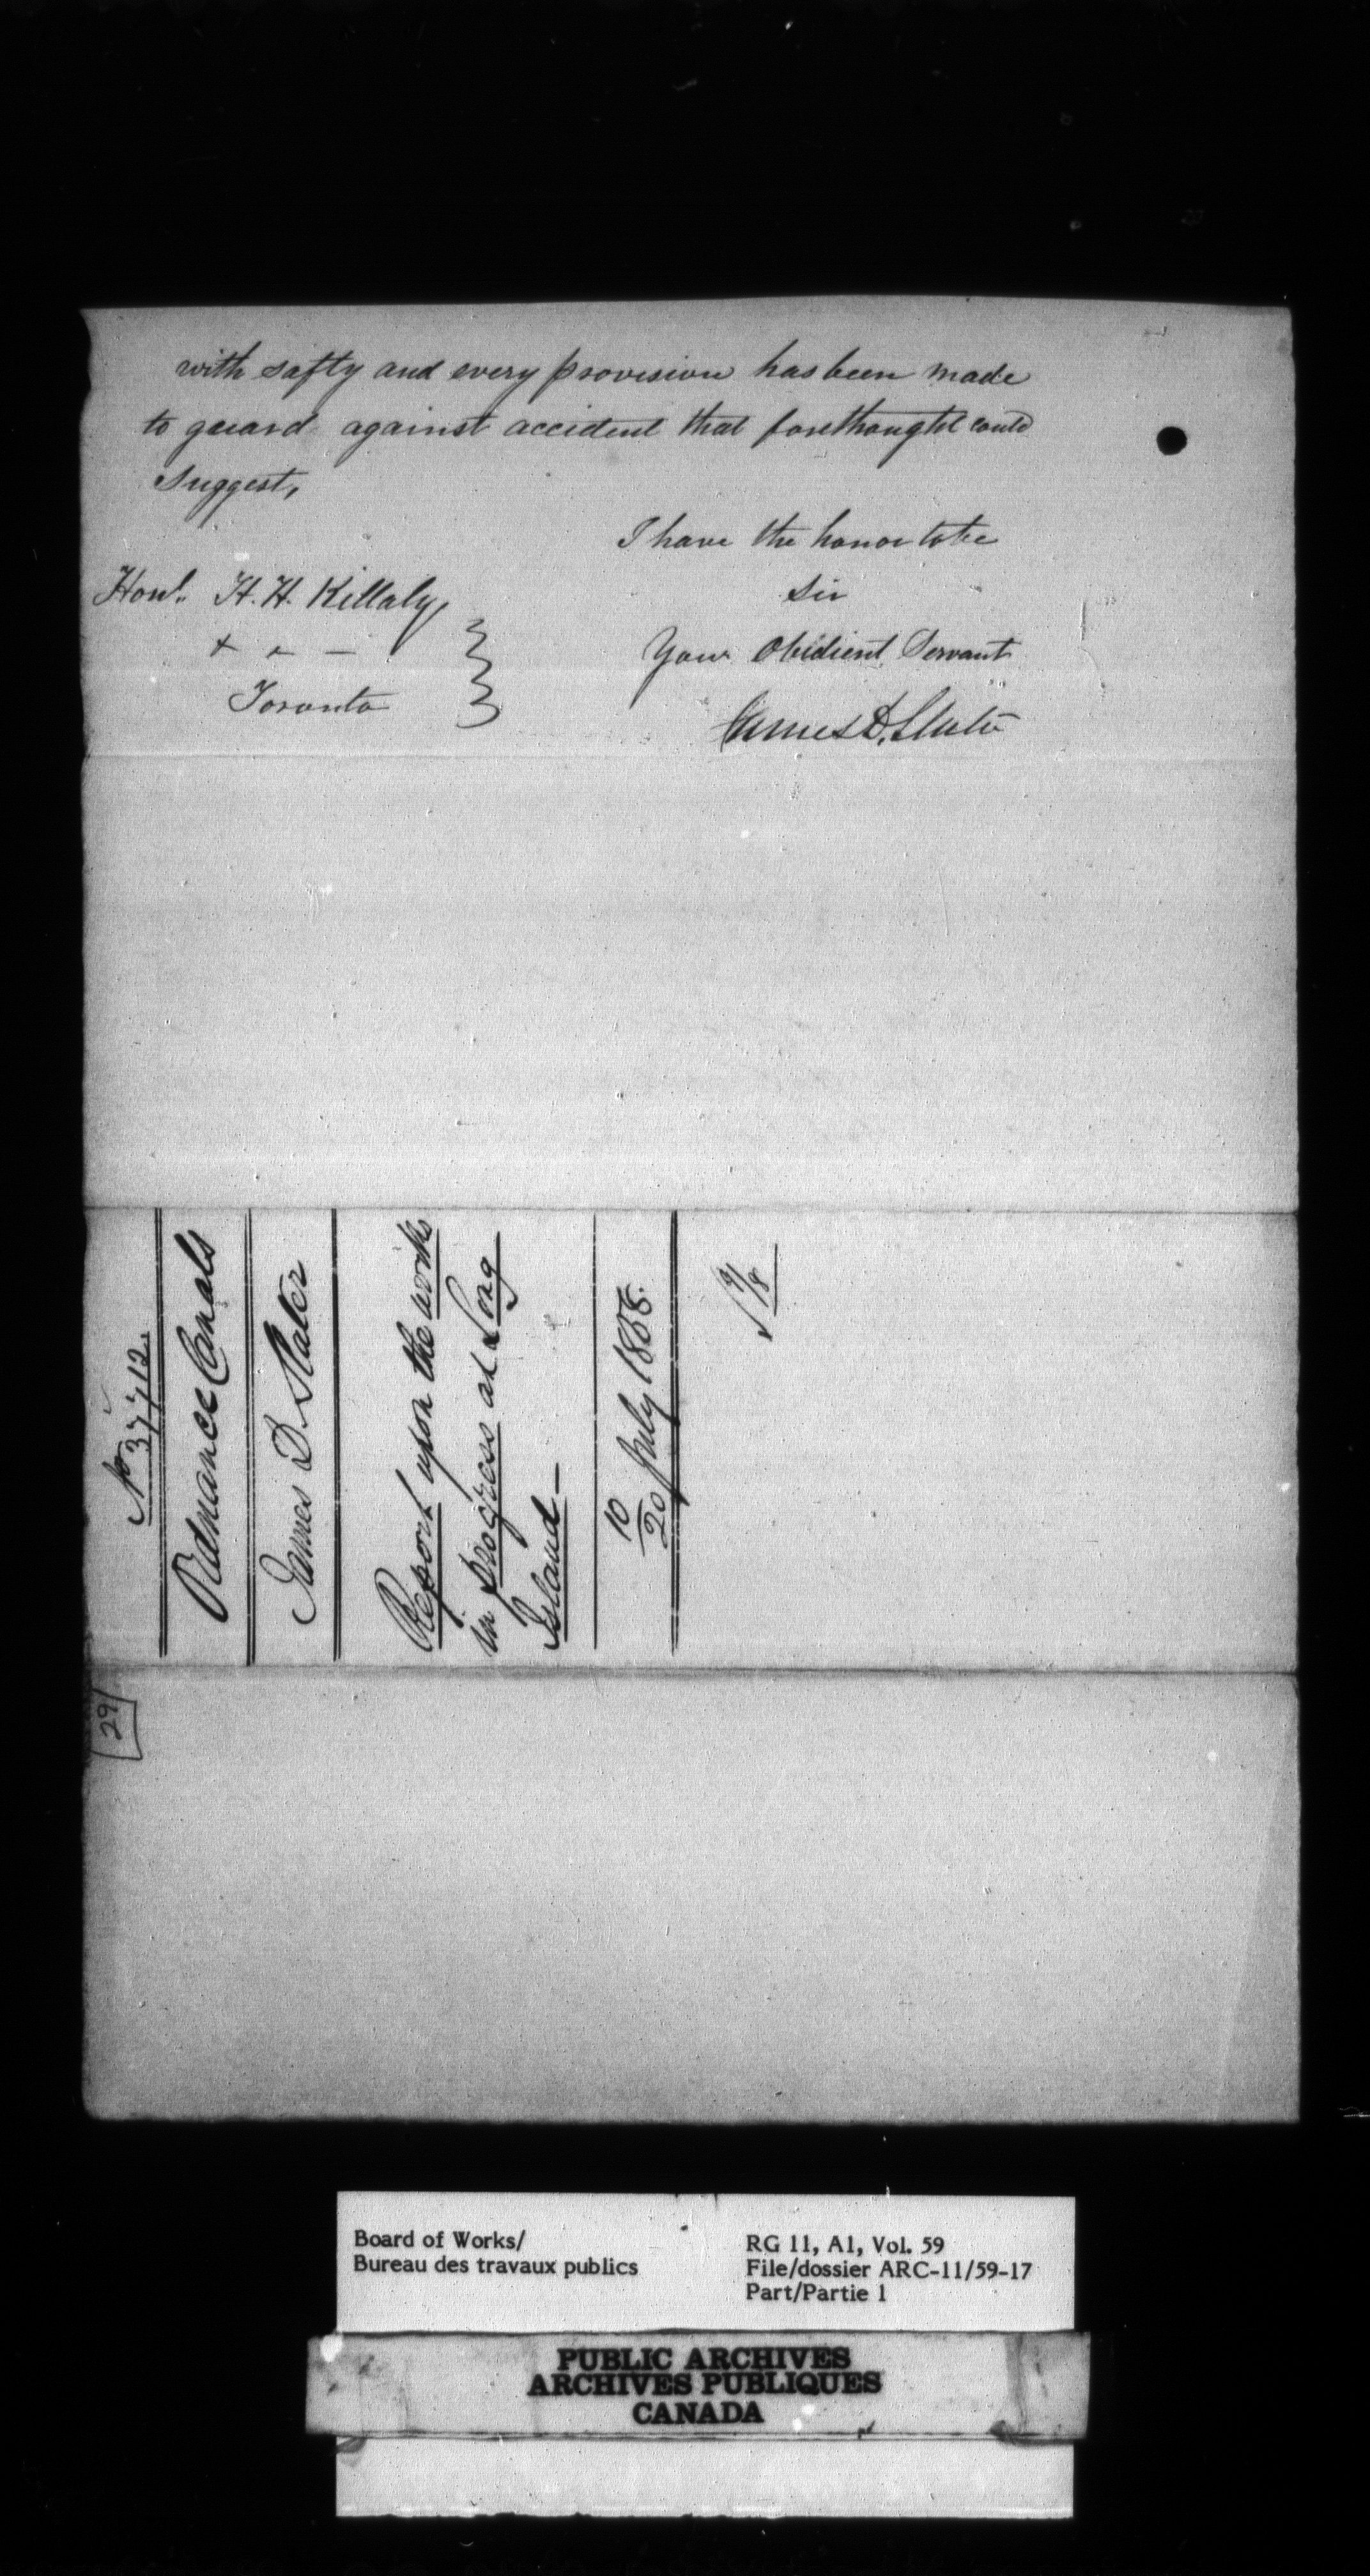 with safty and every provision has been made
to guard against accident that forethought could
suggest,
I have the honor to be
Sir
Your Obidient Servant
James D. Slater
Honl. H. H. Killaly,
Toronto
No 37712.
Ordnance Canals
James D. Slater
Report upon the works
in progress at Long
Island —
10/20 July 1858.
29
Board of Works/
Bureau des travaux publics
RG 11, A1, Vol. 59
File/dossier ARC-11/59-17
Part/Partie 1
PUBLIC ARCHIVES
ARCHIVES PUBLIQUES
CANADA